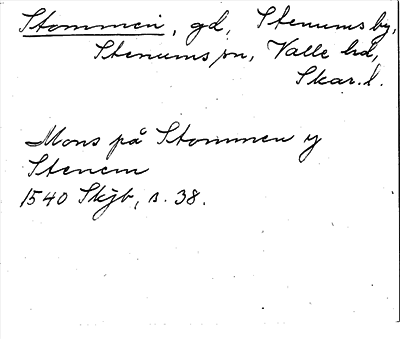 Stommen, gd, Stenums by,
Stenums sn, Valle hd,
Skar. l.
Mons på Stommen y
Stenem
1540 Skjb, s. 38.